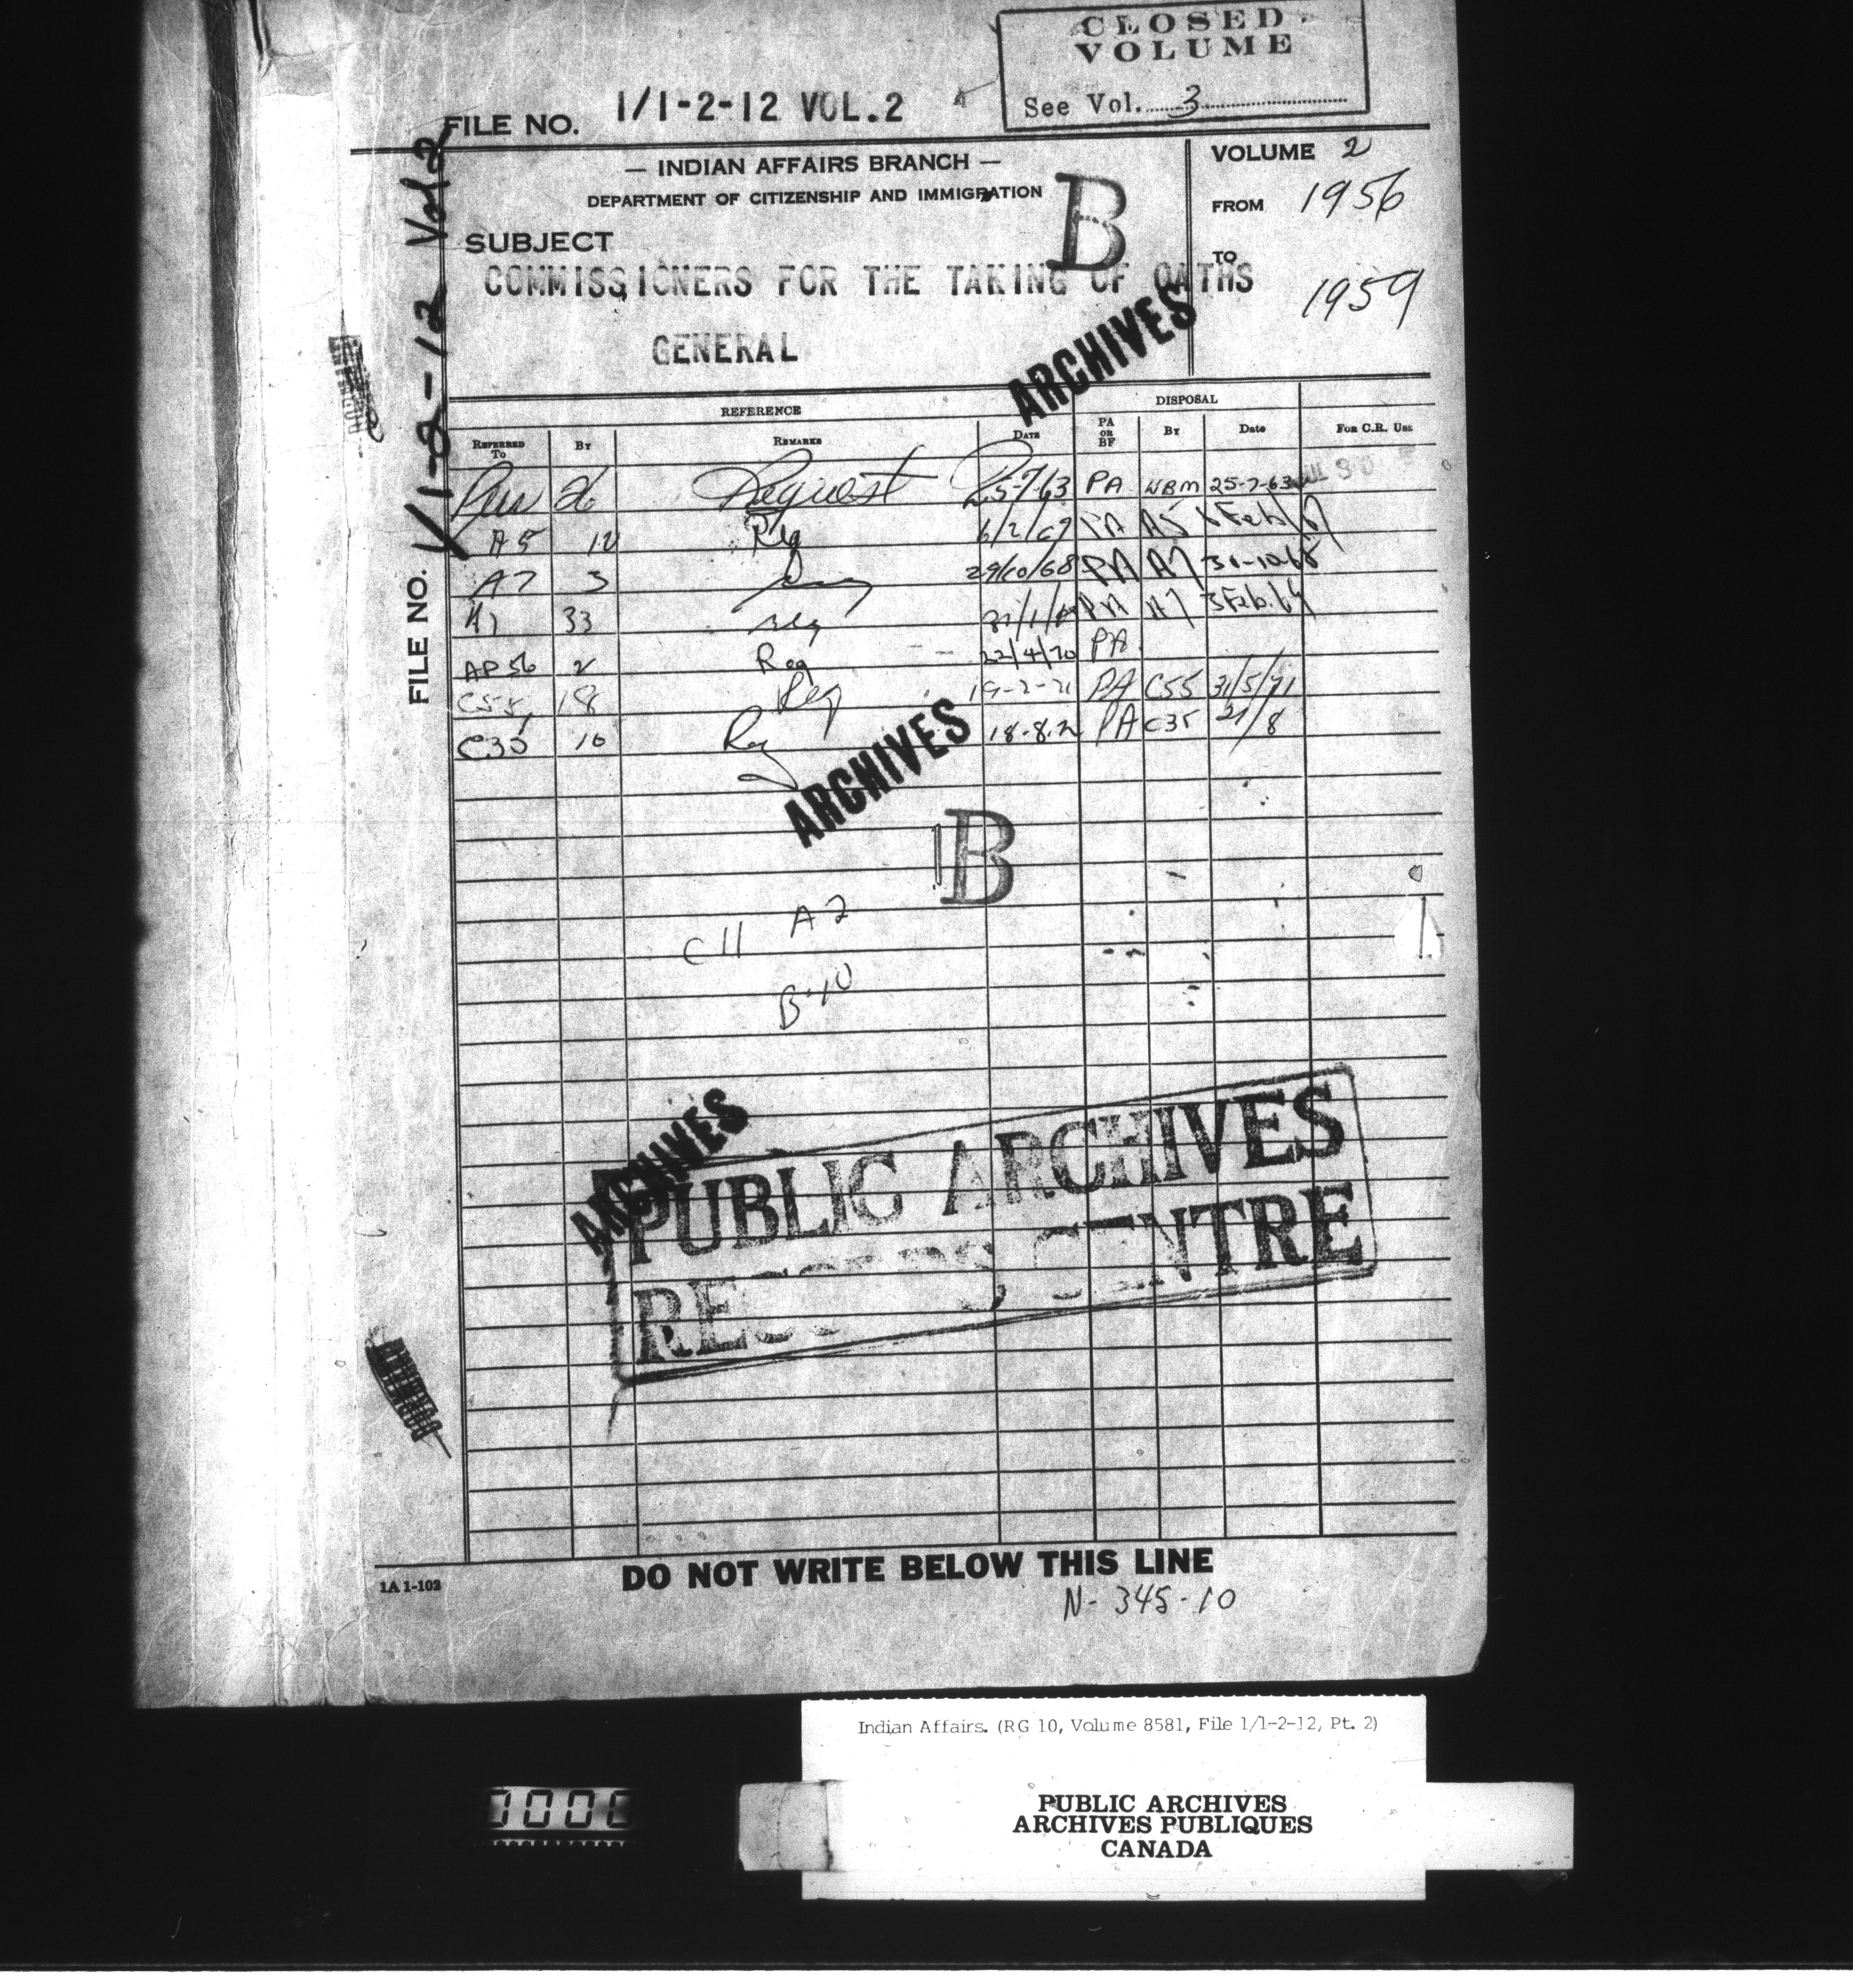 CLOSED
VOLUME
See Vol. 3
FILE NO. 1/1-2-12 VOL.2
— INDIAN AFFAIRS BRANCH —
DEPARTMENT OF CITIZENSHIP AND IMMIGRATION
VOLUME 2
FROM 1956
TO
1959
SUBJECT
COMMISSIONERS FOR THE TAKING OF OATHS
GENERAL
B
ARCHIVES
FILE NO. 1/1-2-12 Vol 2
REFERENCE DISPOSAL
REFERRED TO BY REMARKS DATE PA OR BF BY Date FOR C.R. USE
26 Request 25-7-63 PA WBM 25-7-63
A5 12 Reg 6/2/67 PA A5 Feb/67
A7 3 29/10/68 PA A7 31-10-68
33 Reg PA A7 3 Feb.
AP56 2 Req 22/4/70 PA
C55, 18 Req 19-2-71 PA C55 31/5/71
C35 10 Req 18-8-2 PA C35 21/8
ARCHIVES
B
A2
C11
B-10
ARCHIVES
PUBLIC ARCHIVES
RECORDS CENTRE
1A 1-102
DO NOT WRITE BELOW THIS LINE
N-345-10
Indian Affairs. (RG 10, Volume 8581, File 1/1-2-12, Pt. 2)
PUBLIC ARCHIVES
ARCHIVES PUBLIQUES
CANADA